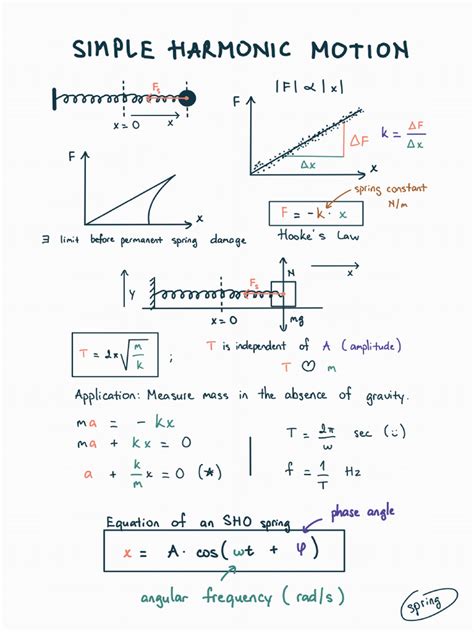 SIMPLE HARMONIC MOTION
Fₛ
x=0
x
|F| α |x|
F
ΔF
Δx
x
k = ΔF/Δx
spring constant
N/m
F = -k · x
Hooke's Law
F
x
∃ limit before permanent spring damage
y
Fₛ
N
x
x=0
mg
T = 2π√(m/k) ;
T is independent of A (amplitude)
T ♡ m
Application: Measure mass in the absence of gravity.
ma = - kx
ma + kx = 0
a + k/m x = 0 (*)
T = 2π/ω sec (:)
f = 1/T Hz
Equation of an SHO spring
phase angle
x = A · cos(ωt + φ)
angular frequency (rad/s)
spring